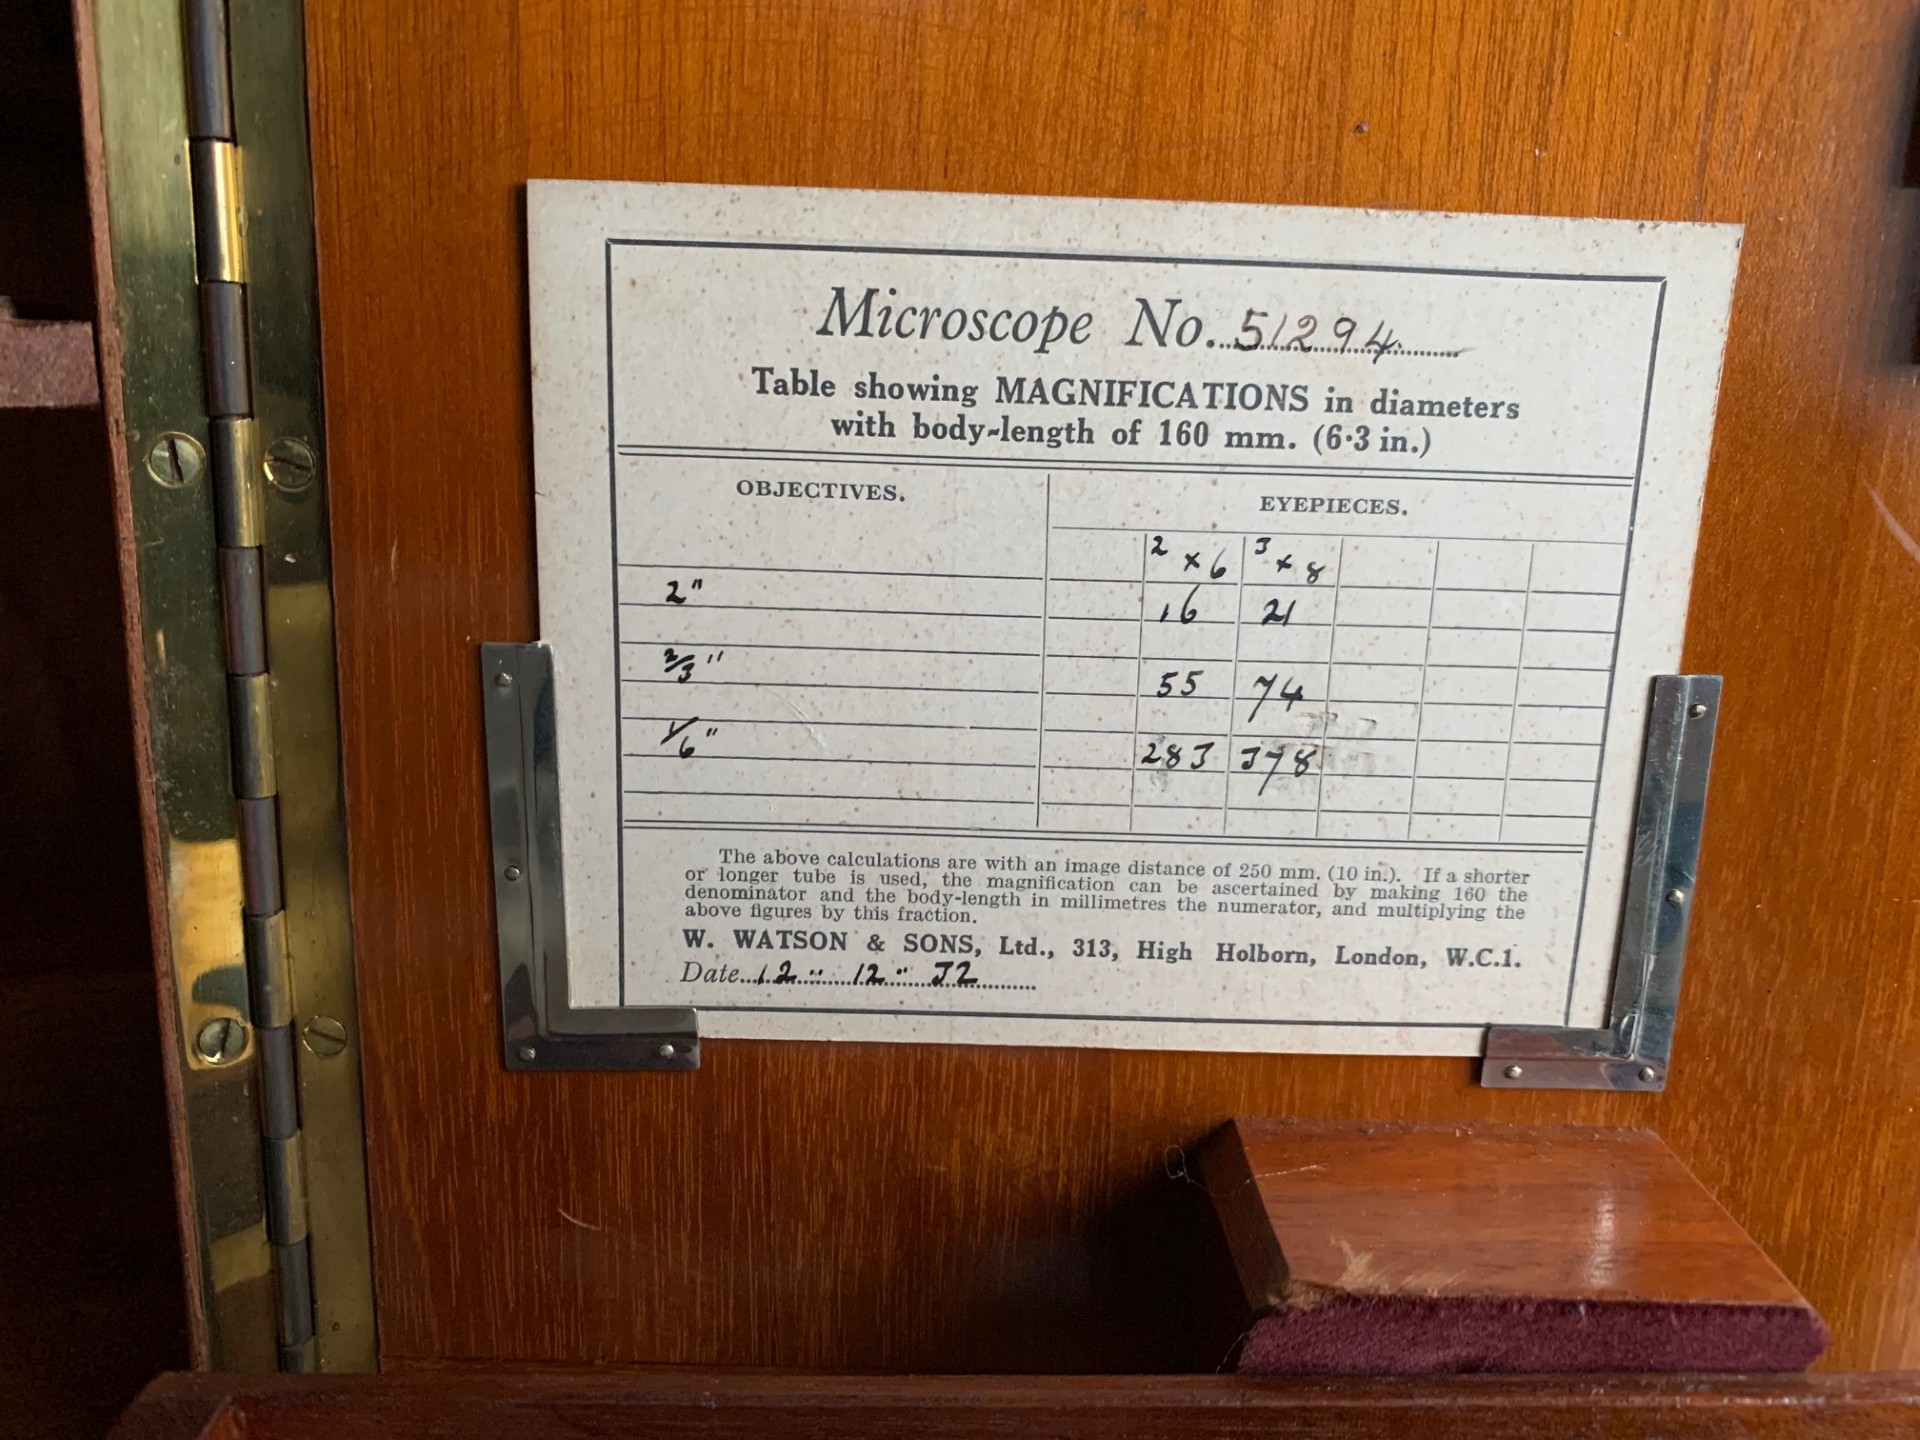 Microscope No. 51294
Table showing MAGNIFICATIONS in diameters
with body-length of 160 mm. (6·3 in.)
OBJECTIVES. EYEPIECES.
2 x 6 3 x 8
2" 16 21
2/3" 55 74
1/6" 283 378
The above calculations are with an image distance of 250 mm. (10 in.). If a shorter
or longer tube is used, the magnification can be ascertained by making 160 the
denominator and the body-length in millimetres the numerator, and multiplying the
above figures by this fraction.
W. WATSON & SONS, Ltd., 313, High Holborn, London, W.C.1.
Date 12 : 12 : 32